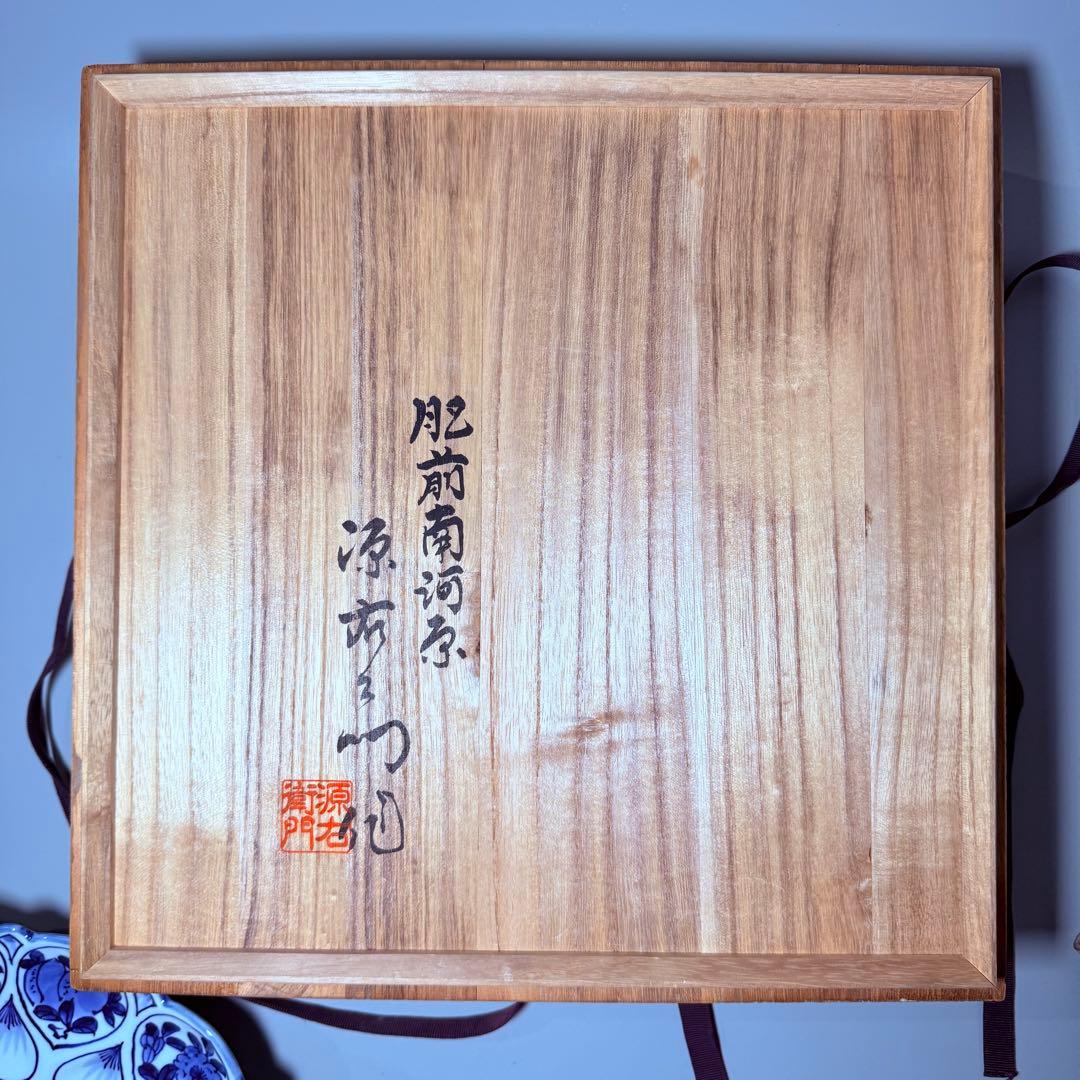 肥前南河原
源右衛門作
源右
衛門